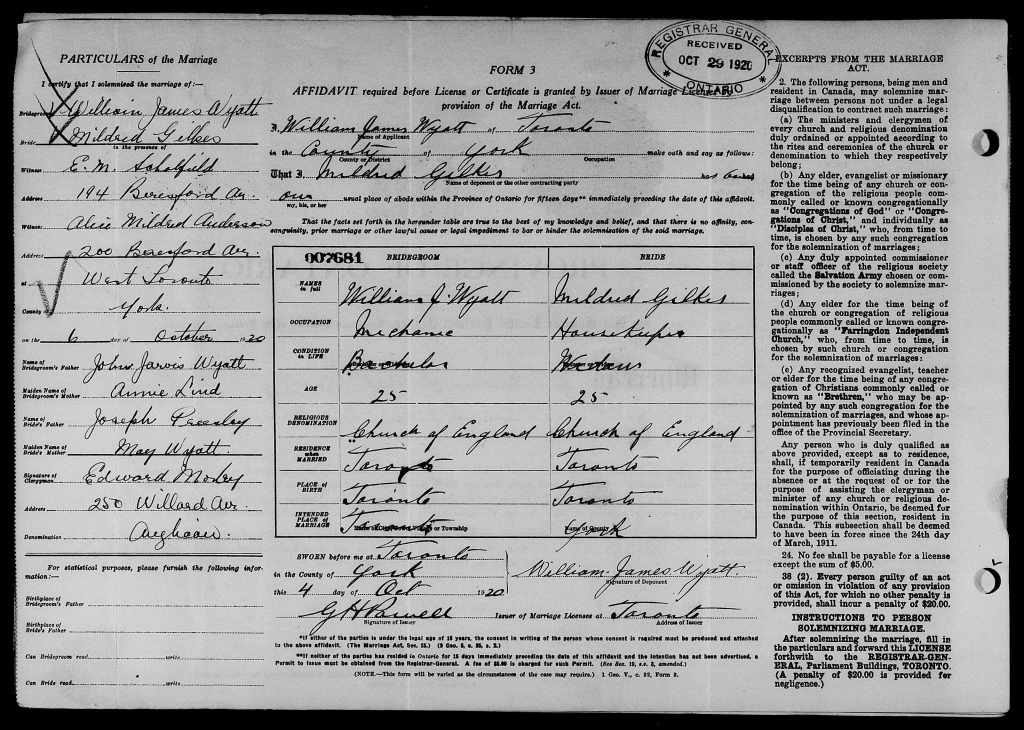 PARTICULARS of the Marriage
I certify that I solemnized the marriage of:—
Bridegroom William James Wyatt
Bride Mildred Gilkes
in the presence of
Witness E. M. Scholfield
Address 194 Beresford Av.
Witness Alice Mildred Anderson
Address 200 Beresford Av.
at West Toronto
County of York
on the 6 day of October 1920
Name of Bridegroom's Father John Jarvis Wyatt
Maiden Name of Bridegroom's Mother Annie Lind
Name of Bride's Father Joseph
Maiden Name of Bride's Mother May Wyatt
Signature of Clergyman Edward Morley
Address 250 Willard Av.
Denomination Anglican.
For statistical purposes, please furnish the following information:—
Birthplace of Bridegroom's Father
Birthplace of Bridegroom's Mother
Can Bridegroom read write
Can Bride read write
REGISTRAR GENERAL
RECEIVED
OCT 29 1920
ONTARIO
FORM 3
AFFIDAVIT required before License or Certificate is granted by Issuer of Marriage Licenses by
provision of the Marriage Act.
I, William James Wyatt of Toronto
Name of Applicant
in the County of York make oath and say as follows:
County or District Occupation
That I, Mildred Gilkes
Name of deponent or the other contracting party
our usual place of abode within the Province of Ontario for fifteen days** immediately preceding the date of this affidavit.
my, his, or her
That the facts set forth in the hereunder table are true to the best of my knowledge and belief, and that there is no affinity, consanguinity, prior marriage or other lawful cause or legal impediment to bar or hinder the solemnisation of the said marriage.
007681 BRIDEGROOM BRIDE
NAMES in full William J. Wyatt Mildred Gilkes
OCCUPATION Mechanic Housekeeper
CONDITION in LIFE Bachelor Widow
AGE 25 25
RELIGIOUS DENOMINATION Church of England Church of England
RESIDENCE when MARRIED Toronto Toronto
PLACE OF BIRTH Toronto Toronto
INTENDED PLACE of MARRIAGE Toronto York
Name of County
SWORN before me at Toronto
in the County of York
this 4 day of Oct 1920
William James Wyatt.
Signature of Deponent
G H Powell Issuer of Marriage Licenses at Toronto
Signature of Issuer Address of Issuer
*If either of the parties is under the legal age of 18 years, the consent in writing of the person whose consent is required must be produced and attached
to the above affidavit. (The Marriage Act, Sec. 15.)
**If neither of the parties has resided in Ontario for 15 days immediately preceding the date of this affidavit and the intention has not been advertised, a
Permit to Issue must be obtained from the Registrar-General. A fee of $5.00 is charged for such Permit. (See Sec. 19, s.s. 2, amended.)
(NOTE.—This form will be varied as the circumstances of the case may require.) 1 Geo. V., c. 32, Form 3.
EXCERPTS FROM THE MARRIAGE
ACT.
2. The following persons, being men and
resident in Canada, may solemnize mar-
riage between persons not under a legal
disqualification to contract such marriage:
(a) The ministers and clergymen of
every church and religious denomination
duly ordained or appointed according to
the rites and ceremonies of the church or
denomination to which they respectively
belong;
(b) Any elder, evangelist or missionary
for the time being of any church or con-
gregation of the religious people com-
monly called or known congregationally
as "Congregations of God" or "Congre-
gations of Christ," and individually as
"Disciples of Christ," who, from time to
time, is chosen by any such congregation
for the solemnization of marriages;
(c) Any duly appointed commissioner
or staff officer of the religious society
called the Salvation Army chosen or com-
missioned by the society to solemnize mar-
riages;
(d) Any elder for the time being of
the church or congregation of religious
people commonly called or known congre-
gationally as "Farringdon Independent
Church," who, from time to time, is
chosen by such church or congregation
for the solemnization of marriages:
(e) Any recognized evangelist, teacher
or elder for the time being of any congre-
gation of Christians commonly called or
known as "Brethren," who may be ap-
pointed by any such congregation for the
solemnization of marriages, and whose ap-
pointment has previously been filed in the
office of the Provincial Secretary.
Any person who is duly qualified as
above provided, except as to residence,
shall, if temporarily resident in Canada
for the purpose of officiating during the
absence or at the request of or for the
purpose of assisting the clergyman or
minister of any church or religious de-
nomination within Ontario, be deemed for
the purpose of this section, resident in
Canada. This subsection shall be deemed
to have been in force since the 24th day
of March, 1911.
24. No fee shall be payable for a license
except the sum of $5.00.
38 (2). Every person guilty of an act
or omission in violation of any provision
of this Act, for which no other penalty is
provided, shall incur a penalty of $20.00.
INSTRUCTIONS TO PERSON
SOLEMNIZING MARRIAGE.
After solemnizing the marriage, fill in
the particulars and forward this LICENSE
forthwith to the REGISTRAR-GEN-
ERAL, Parliament Buildings, TORONTO.
(A penalty of $20.00 is provided for
negligence.)